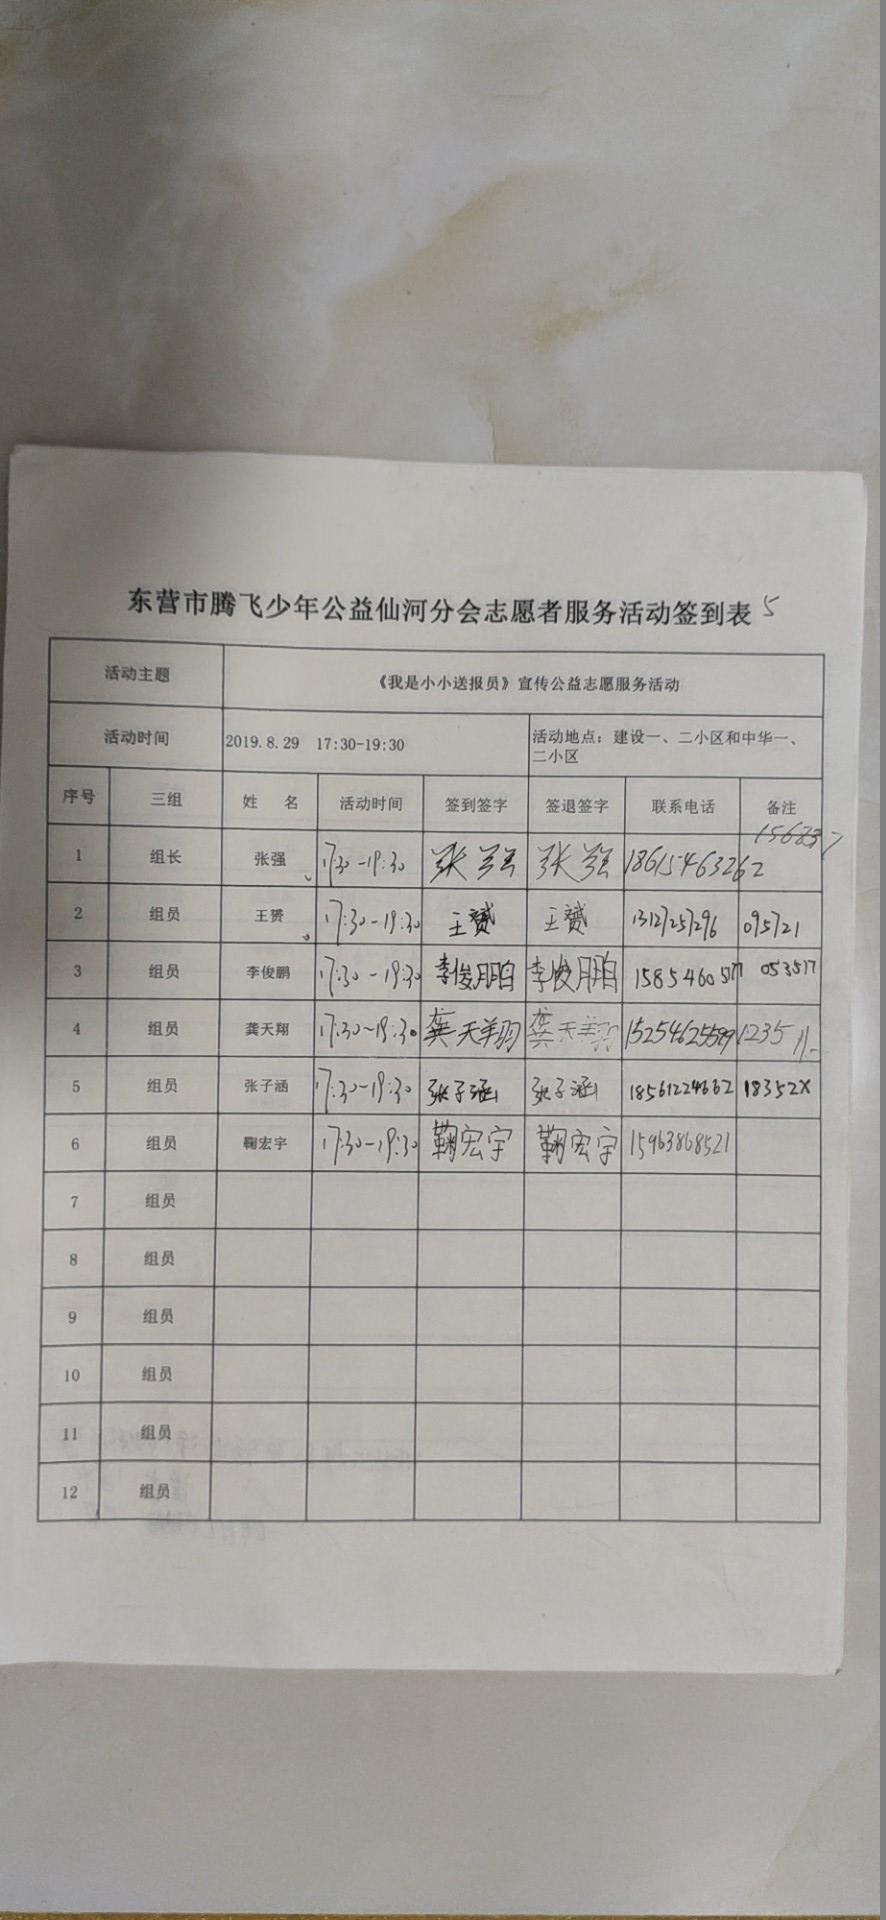 东营市腾飞少年公益仙河分会志愿者服务活动签到表 5
活动主题 《我是小小送报员》宣传公益志愿服务活动
活动时间 2019.8.29 17:30-19:30 活动地点：建设一、二小区和中华一、
二小区
序号 三组 姓 名 活动时间 签到签字 签退签字 联系电话 备注
1 组长 张强 17:30-19:30 张强 张强 18615463262
2 组员 王赟 17:30-19:30 王赟 王赟 13127257296 095721
3 组员 李俊鹏 17:30-19:30 李俊鹏 李俊鹏 053517
4 组员 龚天翔 17:30-19:30 龚天翔 龚天翔
5 组员 张子涵 17:30-19:30 张子涵 张子涵 18561224662 18352X
6 组员 鞠宏宇 17:30-19:30 鞠宏宇 鞠宏宇 15963868521
7 组员
8 组员
9 组员
10 组员
11 组员
12 组员